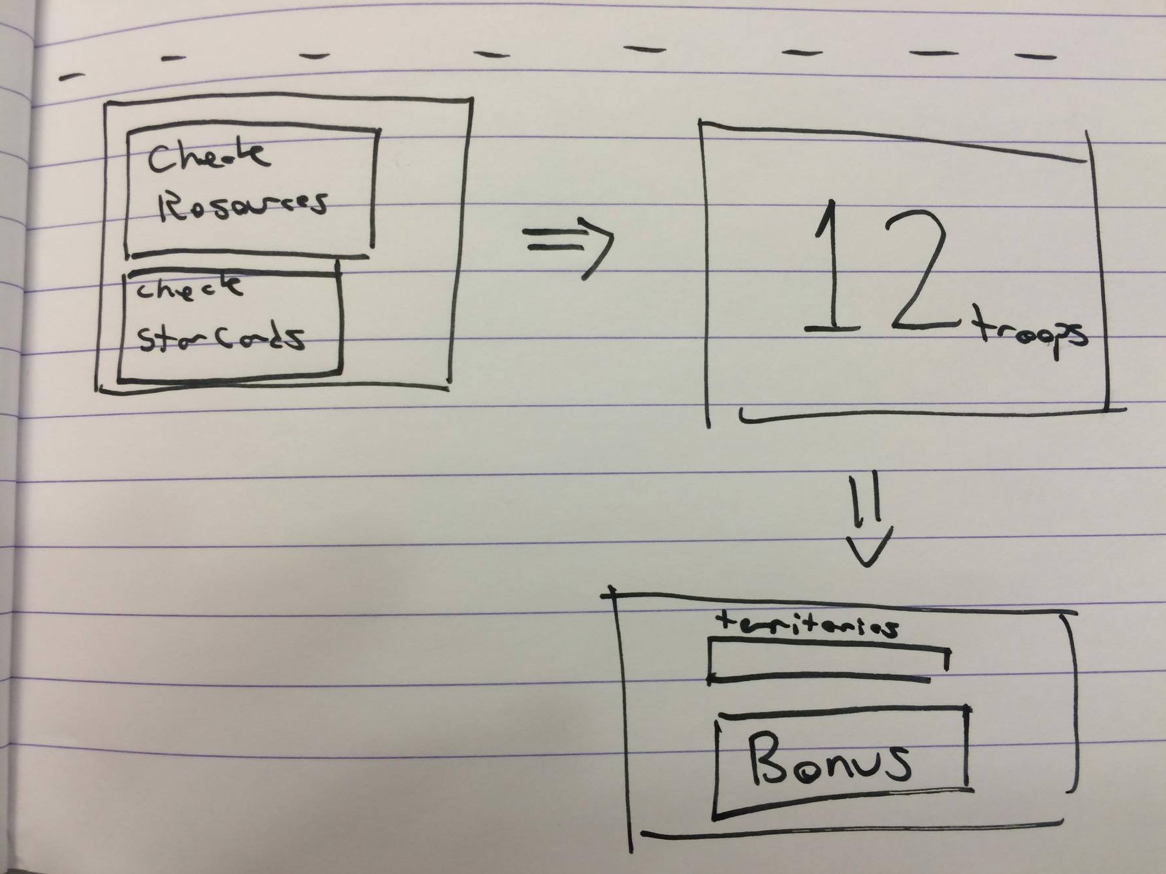 Check
Resources
check
Star Cards
12 troops
territories
Bonus